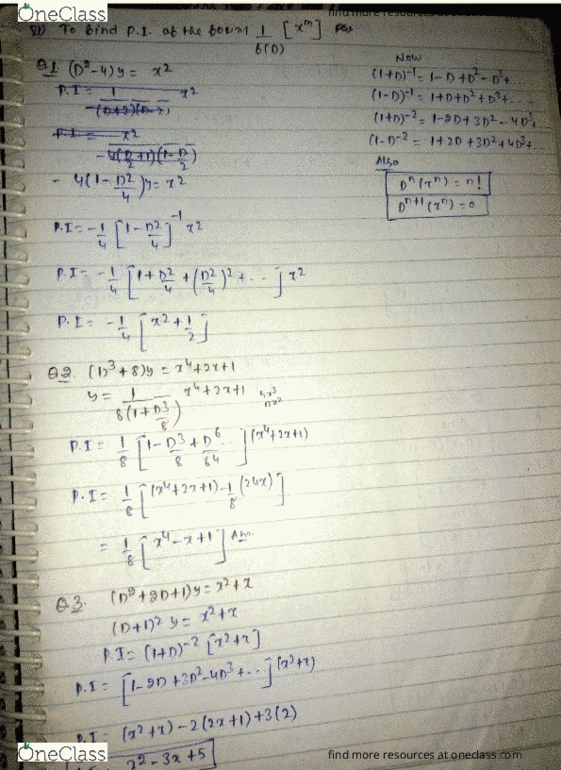 OneClass
find more resources at oneclass.com
To find P.I. of the form 1/f(D) [xⁿ]
Q1 (D²-4)y = x²
P.I = 1/-(D+2)(D-2) x²
P.I = x²/-4(D+1)(1-D/2)
-4(1-D²/4)y = x²
P.I = -1/4 [1-D²/4]⁻¹ x²
P.I = -1/4 [1+D²/4+(D²/4)²+...] x²
P.I = -1/4 [x²+1/2]
Now
(1+D)⁻¹ = 1-D+D²-D³+...
(1-D)⁻¹ = 1+D+D²+D³+...
(1+D)⁻² = 1-2D+3D²-4D³+..
(1-D)⁻² = 1+2D+3D²+4D³+..
Also
Dⁿ(xⁿ) = n!
Dⁿ⁺¹(xⁿ) = 0
Q2. (D³+8)y = x⁴+2x+1
y = 1/8(1+D³/8) x⁴+2x+1
4x³
12x²
P.I = 1/8 [1-D³/8+D⁶/64...](x⁴+2x+1)
P.I = 1/8 [(x⁴+2x+1)-1/8(24x)]
= 1/8 [x⁴-x+1] Ans.
Q3. (D²+2D+1)y = x²+x
(D+1)² y = x²+x
P.I = (1+D)⁻² [x²+x]
P.I = [1-2D+3D²-4D³+...](x²+x)
P.I = (x²+x)-2(2x+1)+3(2)
x²-3x+5
OneClass
find more resources at oneclass.com